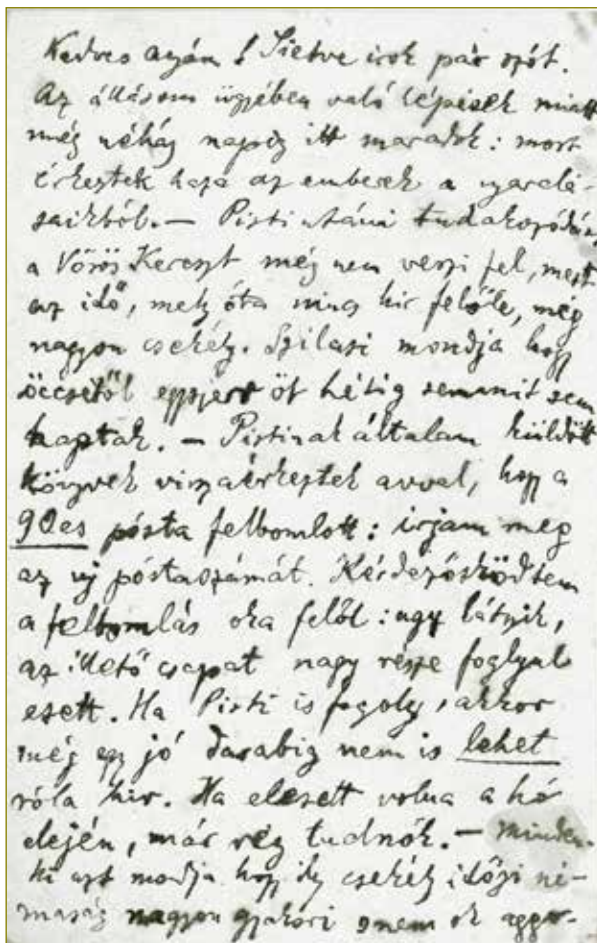 Kedves Anyám! Sietve irok pár szót.
Az állásom ügyében való lépések miatt
még néhány napig itt maradok: most
érkeztek haza az emberek a nyaralá-
saikból. — Pisti utáni tudakozódást
a Vörös Kereszt még nem veszi fel, mert
az idő, mely óta nincs hir felőle, még
nagyon csekély. Szilasi mondja hogy
öccsétől egyszer öt hétig semmit sem
kaptak. — Pistinak általam küldött
könyvek visszaérkeztek avval, hogy a
90es pósta felbomlott: irjam meg
az uj póstaszámát. Kérdezősködtem
a felbomlás oka felől: ugy látszik,
az illető csapat nagy része foglyul
esett. Ha Pisti is fogoly, akkor
még egy jó darabig nem is lehet
róla hir. Ha elesett volna a hó
elején, már rég tudnók. — Minden-
ki azt modja hogy ily csekély idői né-
maság nagyon gyakori s nem ok aggo-